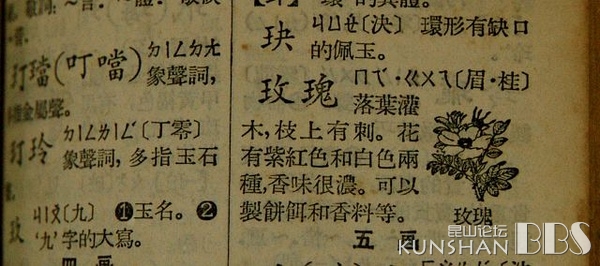 玎璫(叮噹)ㄉㄧㄥㄉㄤ
象聲詞,
金屬聲。
玎玲 ㄉㄧㄥㄌㄧㄥˊ〔丁零〕
象聲詞,多指玉石
玖 ㄐㄧㄡˇ〔九〕❶玉名。❷
'九'字的大寫。
四畫
的異體。
玦 ㄐㄩㄝˊ〔決〕環形有缺口
的佩玉。
玫瑰 ㄇㄟˊ·ㄍㄨㄟ〔眉·桂〕
落葉灌
木,枝上有刺。花
有紫紅色和白色兩
種,香味很濃。可以
製餅餌和香料等。
玫瑰
五畫
昆山论坛
KUNSHAN BBS